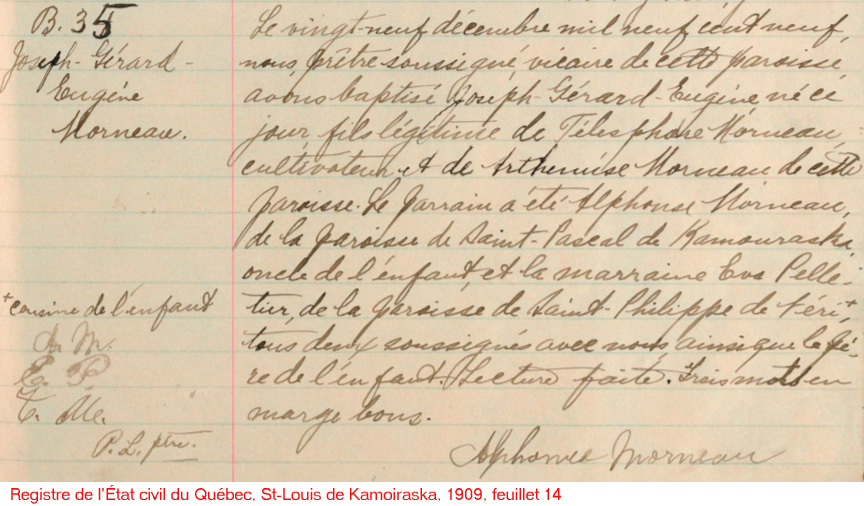 B. 35
Joseph-Gérard-
Eugène
Morneau.
Le vingt-neuf décembre mil neuf cent neuf,
nous, prêtre soussigné, vicaire de cette paroisse,
avons baptisé Joseph-Gérard-Eugène né ce
jour fils légitime de Télesphore Morneau,
cultivateur, et de Arthémise Morneau de cette
paroisse. Le parrain a été Alphonse Morneau,
de la paroisse de Saint-Pascal de Kamouraska,
oncle de l'enfant, et la marraine Eva Pelle-
tier, de la paroisse de Saint-Philippe de Néri,+
tous deux soussignés avec nous, ainsi que le pè-
re de l'enfant. Lecture faite. Trois mots en
marge bons.
+cousine de l'enfant
A. M.
E. P.
T. M.
P. L. ptre.
Alphonse Morneau
Registre de l'État civil du Québec, St-Louis de Kamoiraska, 1909, feuillet 14